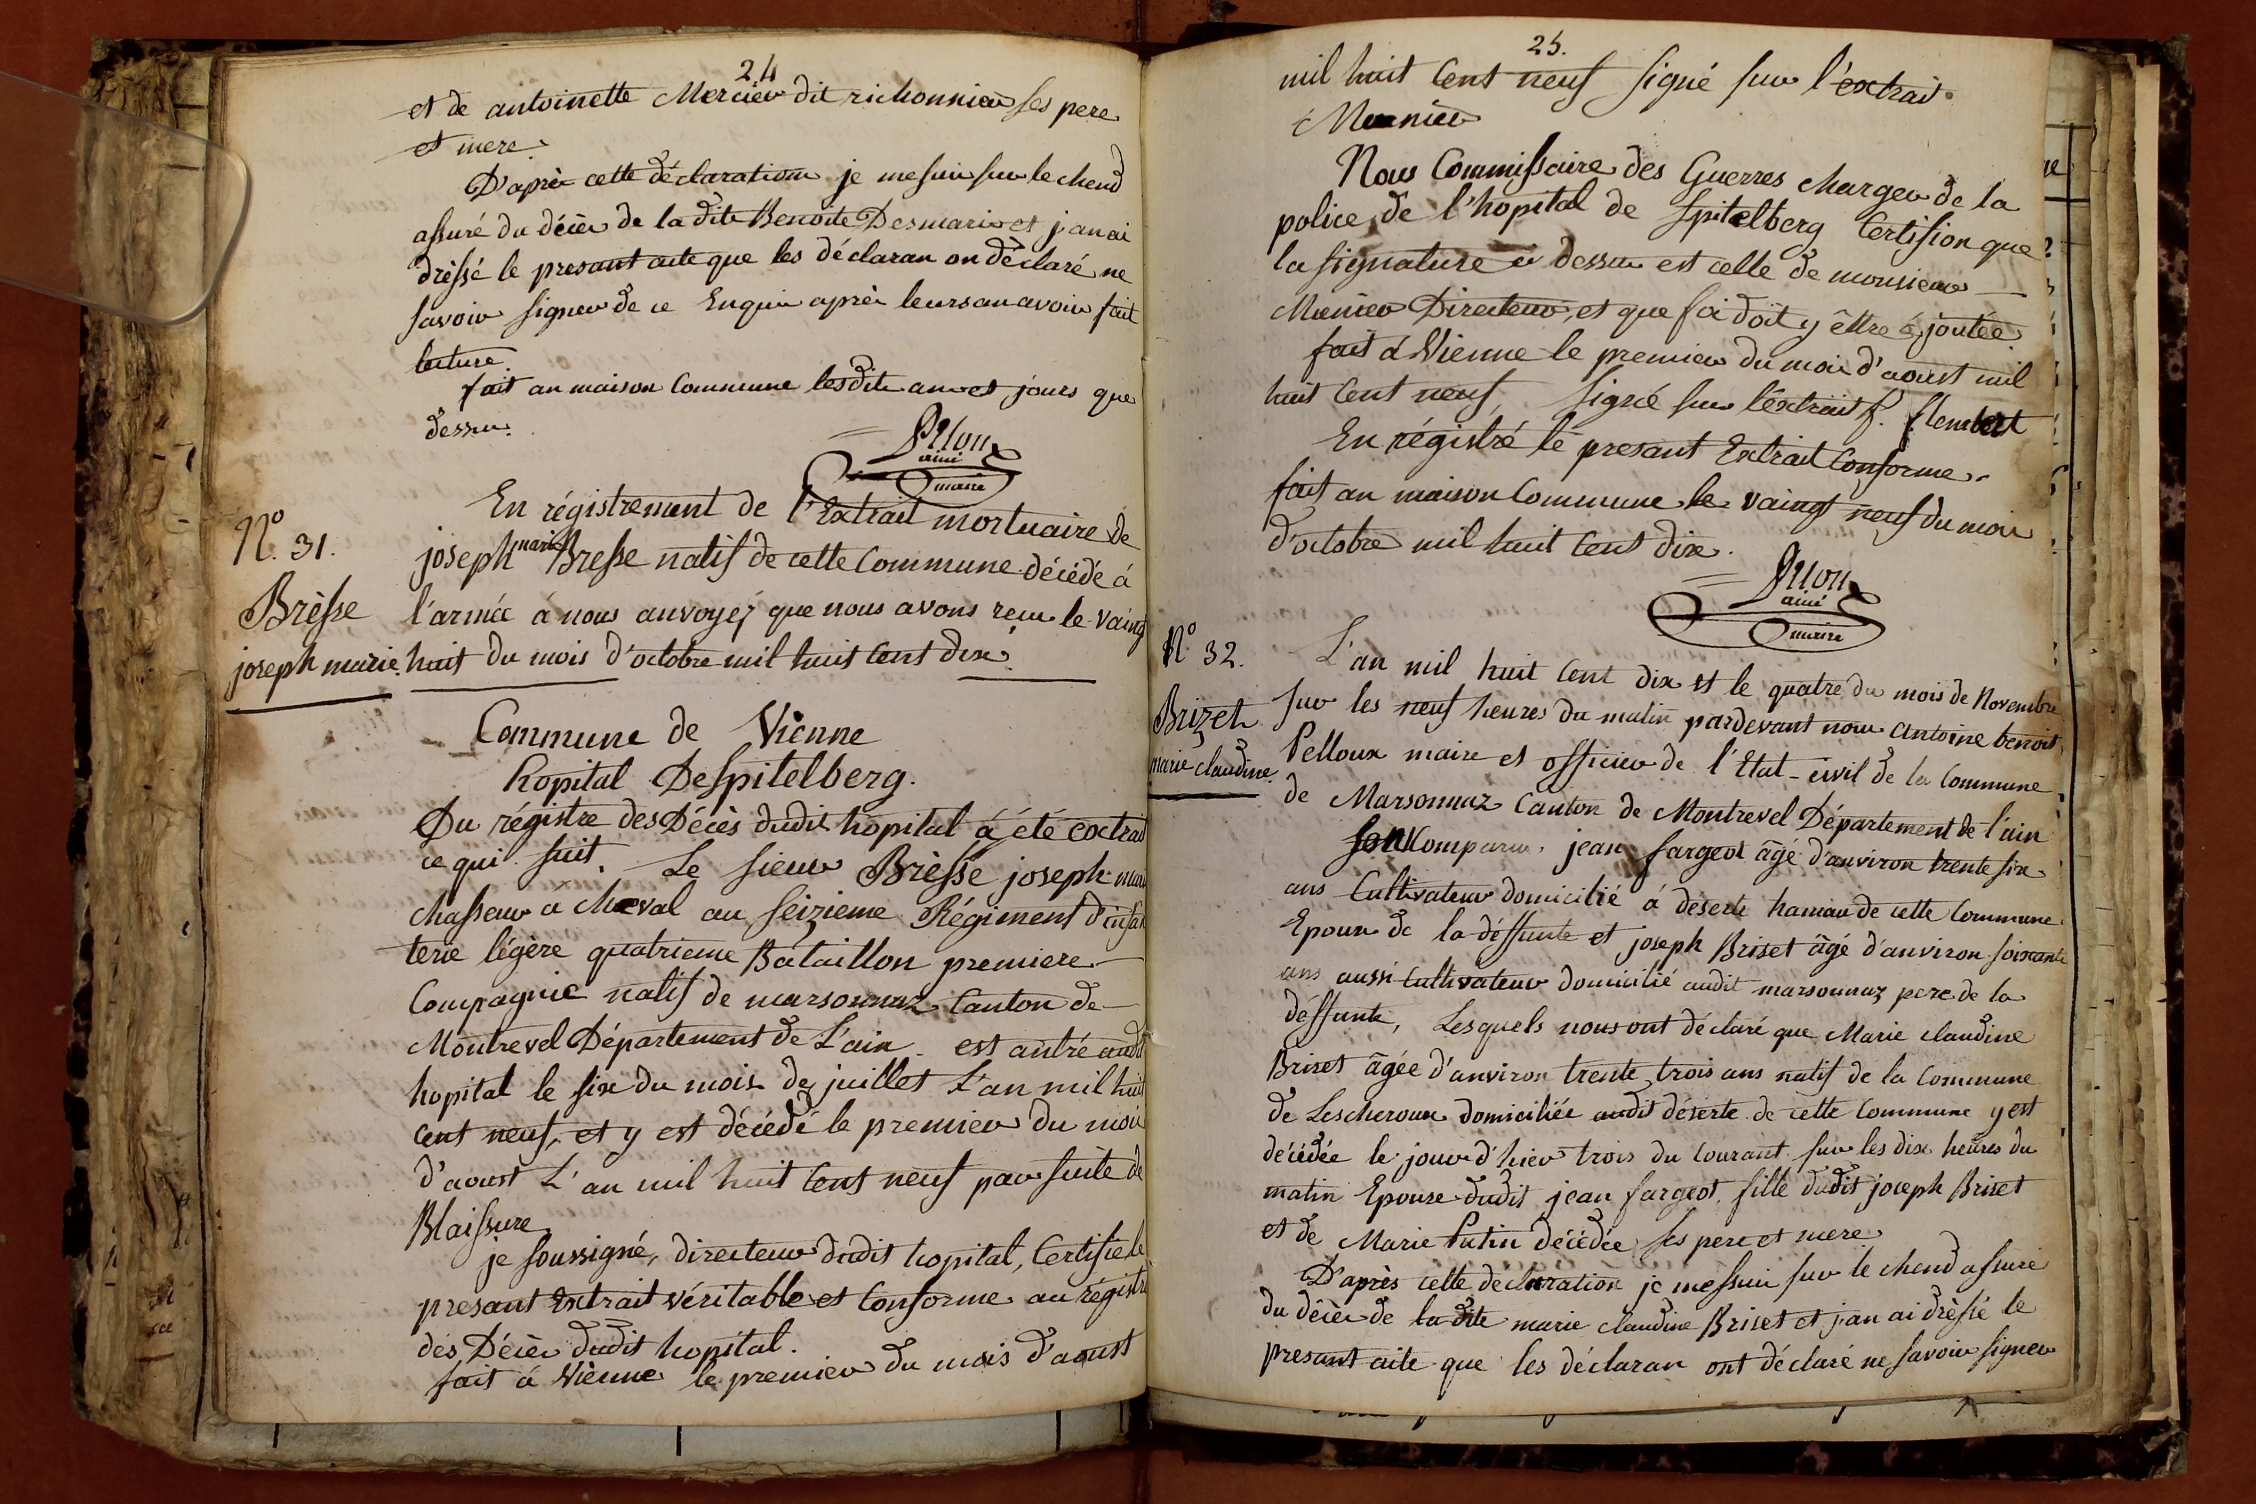 24
et de antoinette Mercier dit richonnier ses pere
et mere.
D'après cette déclaration je mesuis sur le chend
assuré du décès de la dite Benoite Desmaris et j'an ai
drèssé le presant acte que les déclaran on dèclaré ne
savoir signer de ce Enquis après leursanavoir fait
lecture.
fait an maison Commune lesdits an et jours que
dessus.
ainé
maire
N.º 31.
Brèsse
joseph marie.
En régistrement de l'Extrait mortuaire de
joseph marie Bresse natif de cette Commune décédé á
l'armée á nous anvoyéz que nous avons reçu le vaing
huit du mois d'octobre mil huit Cent dix.
Commune de Vienne
hopital DeSpitelberg.
Du régistre des Décès dudit hôpital á été extrait
ce qui suit. Le sieur Brèsse joseph marie
chasseur a cheval au seizieme Régiment d'infan
terie légère quatrieme Bataillon premiere
Compagnie natif de marsonnaz Canton de
Montrevel Département de L'ain est antré audit
hopital le six du mois de juillet L'an mil huit
cent neuf, et y est décédé le premier du mois
d'aoust L'an mil huit Cent neuf par suite de
Blaissure.
je soussigné, directeur dudit hopital, Certifie le
presant Extrait véritable et Conforme au régistre
des Décès dudit hopital.
fait á Vienne le premier du mois d'aoust
25.
mil huit Cent neuf signé sur l'extrait.
Meunier
Nous Commissaire des Guerres charger de la
police de l'hopital de Spitelberg Certifion que
la signature ci dessus est celle de monsieur
Meunier Directeur, et que foi doit y être ajoutée
fait á Vienne le premier du mois d'aoust mil
huit Cent neuf, signé sur l'extrait f.
En régistré le presant Extrait Conforme.
fait an maison Commune le vaingt neuf du mois
d'octobre mil huit Cent dix.
ainé
maire
N.º 32.
Brizet
marie claudine.
L'an mil huit Cent dix et le quatre du mois de Novembre
sur les neuf heures du matin pardevant nous antoine benoit
Pelloux maire et officier de l'Etat-civil de la Commune
de Marsonnaz Canton de Montrevel Département de l'ain
Sont Comparus, jean fargeot âgé d'anviron trente six
ans Cultivateur domicilié á déserte hamau de cette Commune
Epoux de la déffunte et joseph Briset âgé d'anviron soixante
ans aussi Cultivateur domicilié audit marsonnaz pere de la
déffunte, Lesquels nous ont déclaré que Marie claudine
Briset âgée d'anviron trente trois ans natif de la Commune
de Lescheroux domiciliée audit déserte de cette Commune y est
décédée le jour d'hier trois du Courant sur les dix heures du
matin Epouse dudit jean fargeot, fille dudit joseph Briset
et de Marie Putin décédée ses pere et mere
D'après cette declaration je messuis sur le chend assuré
du décès de la dite marie claudine Briset et j'an ai drèssé le
presant acte que les déclaran ont déclaré ne savoir signer